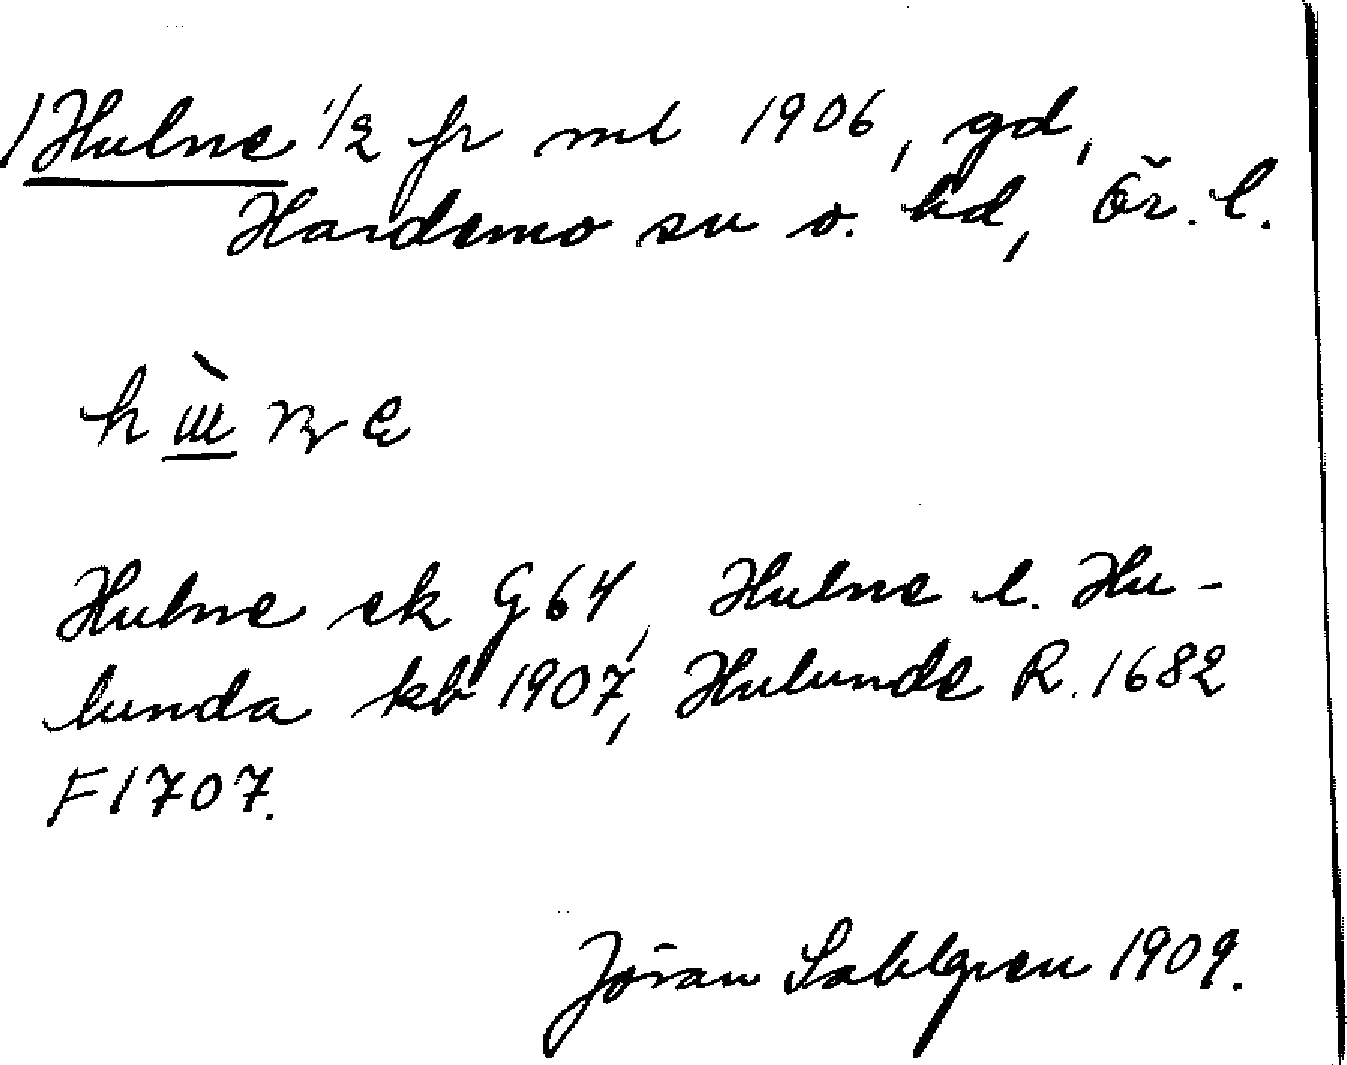 1 Hulne 1/2 fr ml 1906, gd,
Hardemo sn o. hd, Ör. l.
Hulne ek G 64, Hulne l. Hu-
lunda kb 1907, Hulunde R. 1682
F 1707.
Jöran Sahlgren 1909.